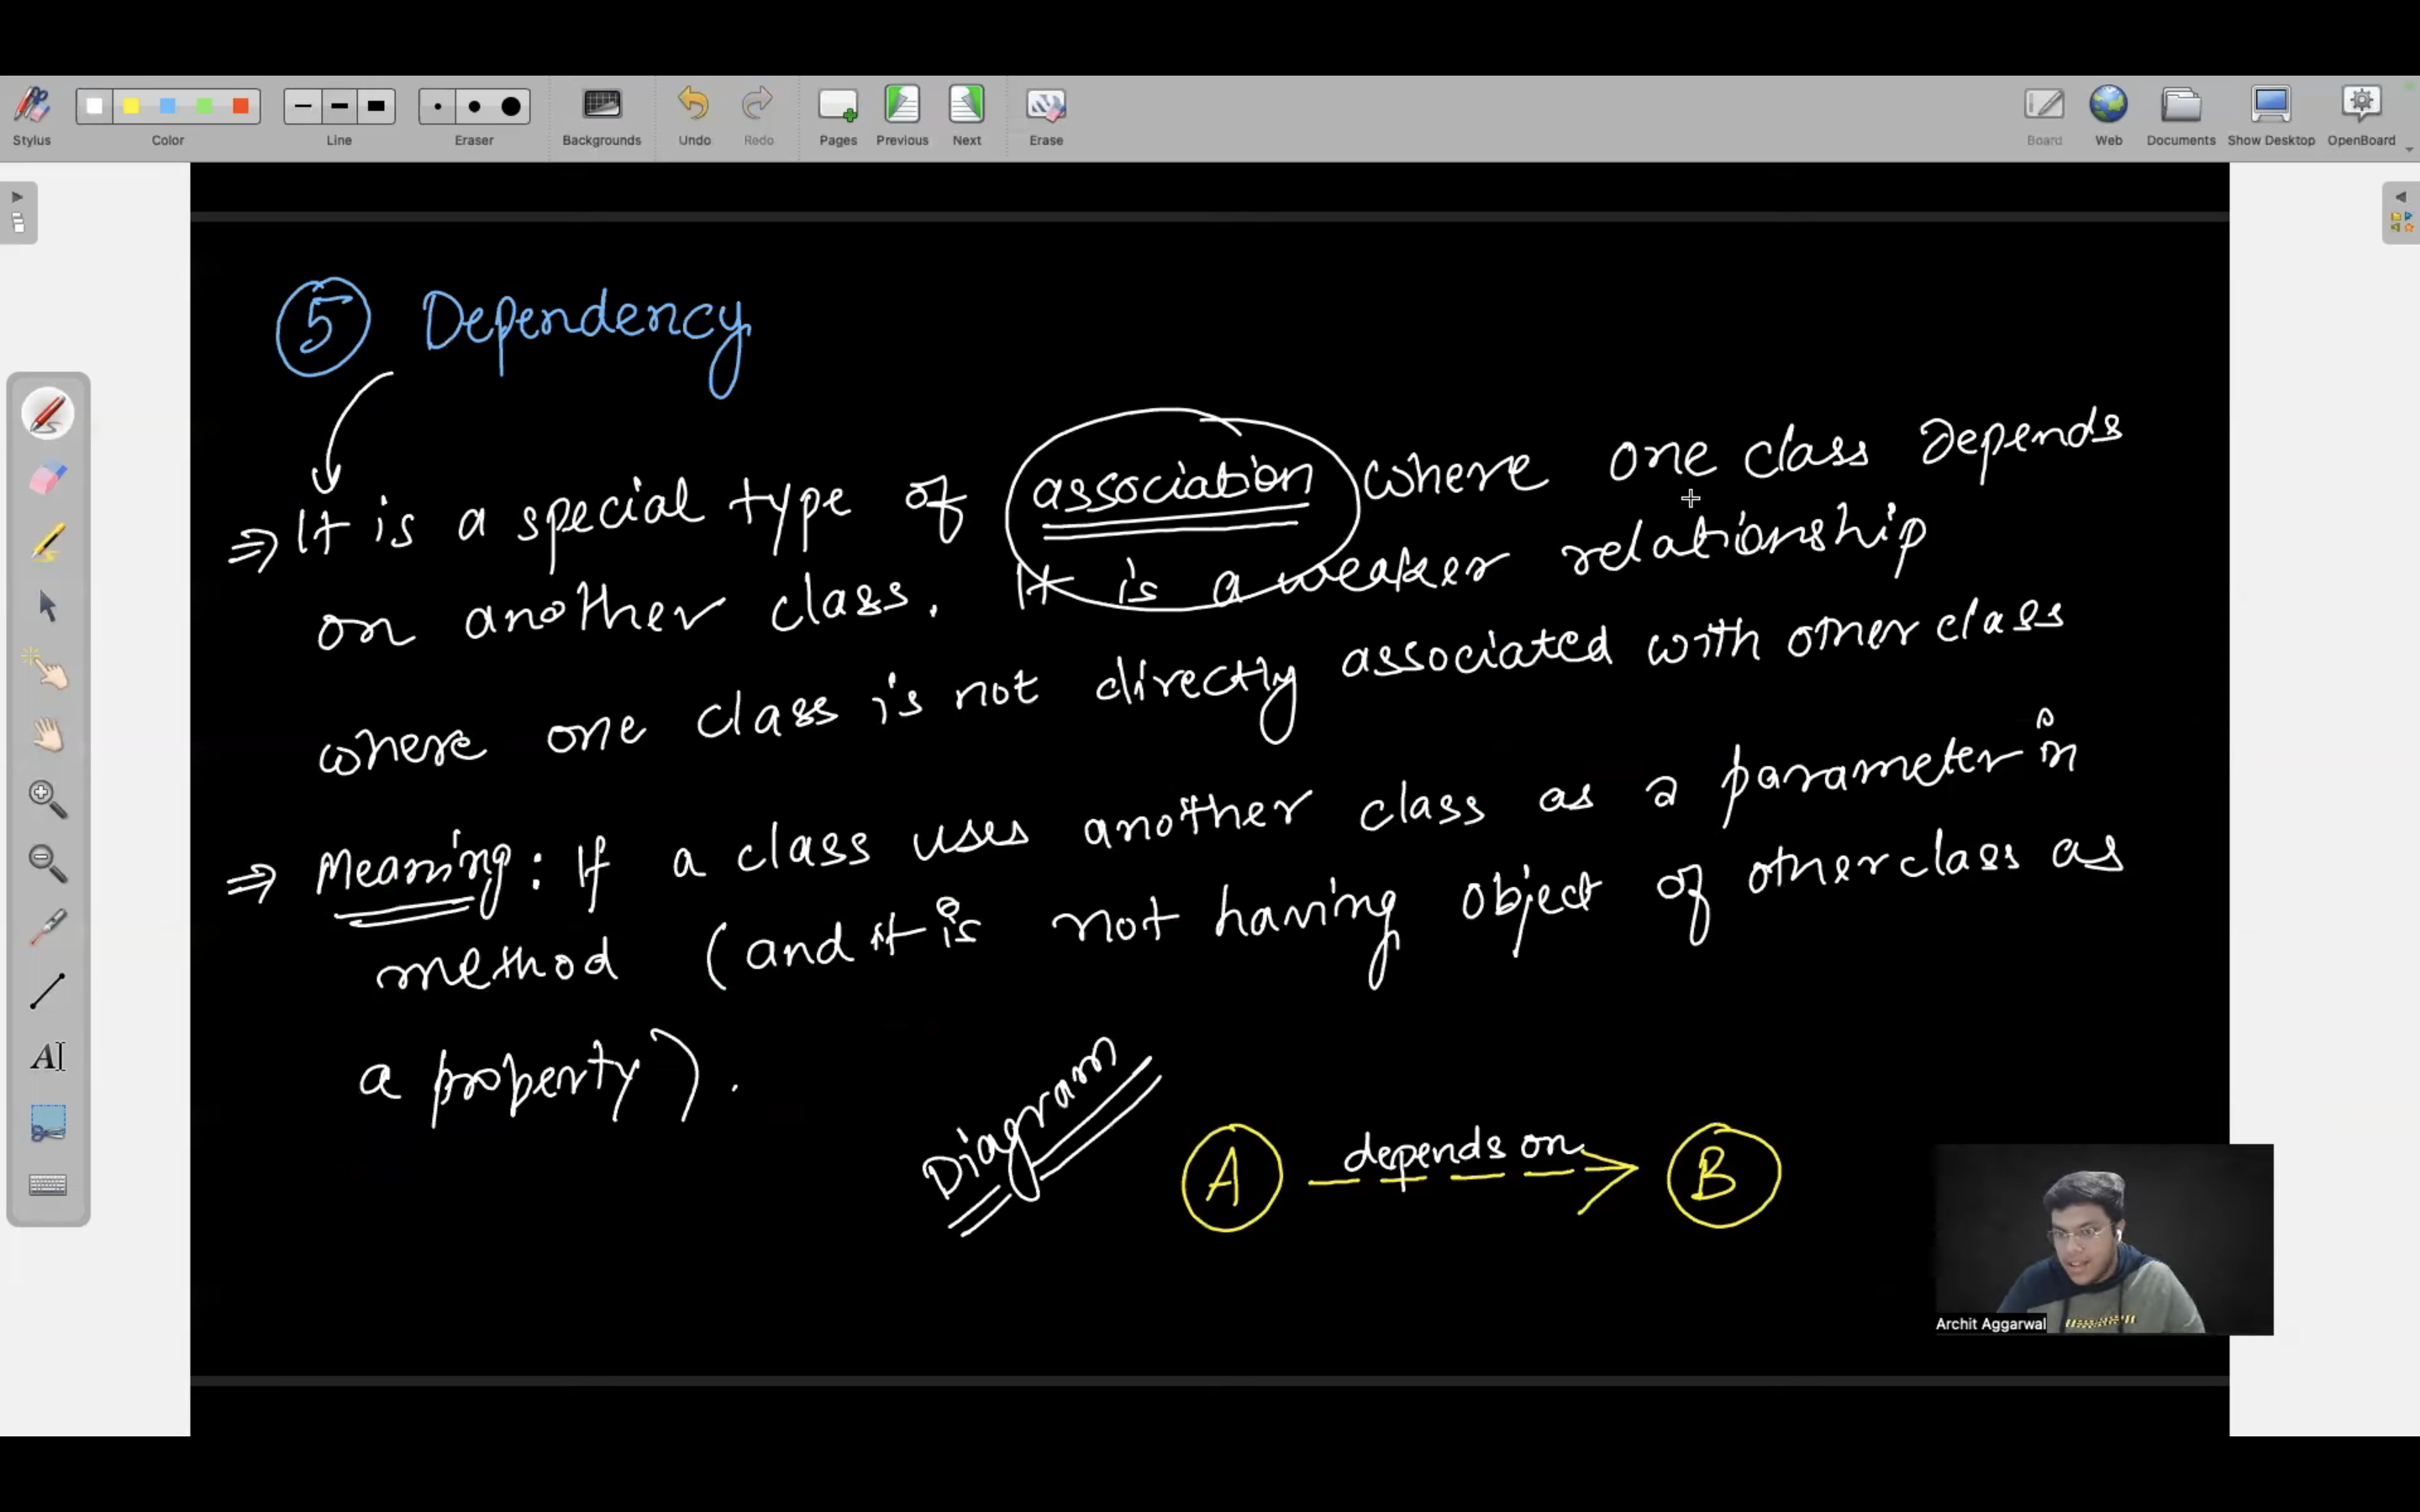 Stylus
Color
Line
Eraser
Backgrounds
Undo
Redo
Pages
Previous
Next
Erase
Board
Web
Documents
Show Desktop
OpenBoard
5 Dependency
⇒ It is a special type of association where one class depends
on another class. It is a weaker relationship
where one class is not directly associated with other class
⇒ Meaning: If a class uses another class as a parameter in
method (and it is not having object of other class as
a property).
Diagram
A depends on B
Archit Aggarwal